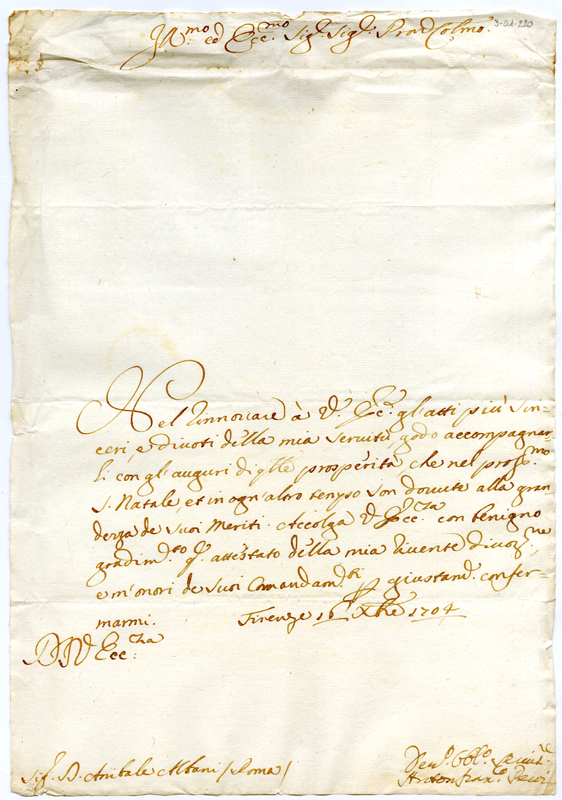 3-01-220
Ill.mo ed Ecc.mo Sig.r Sig.r Pron Colmo.
Nel rinnovare à V. Ecc.za gli atti più sin-
ceri, e divoti della mia servitù, godo accompagnar-
li con gli auguri di q.lle prosperità che nel pross.mo
S. Natale, et in ogn'altro tempo son dovute alla gran
dezza de suoi Meriti. Accolga V. Ecc.za con benigno
gradim.to q.o attestato della mia vivente divoz.ne,
e m'onori de suoi Comandam.ti p giustam. confer-
marmi. Firenze 16 Xbre 1704
D V Ecc.za
Sig. D. Anibale Albani (Roma)
Dev. Obb.o Servit.
Antonfran.o